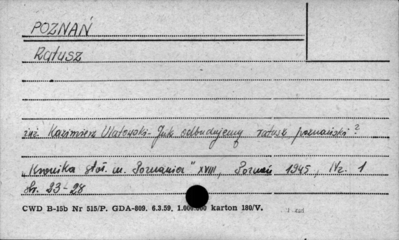 POZNAŃ
Ratusz
inż. Kazimierz Ulatowski - Jak odbudujemy ratusz poznański?
„Kronika stoł. m. Poznania" XVIII, Poznań 1945, Nr. 1
Str. 23-28
CWD B-15b Nr 515/P. GDA-809. 6.3.59. karton 180/V.